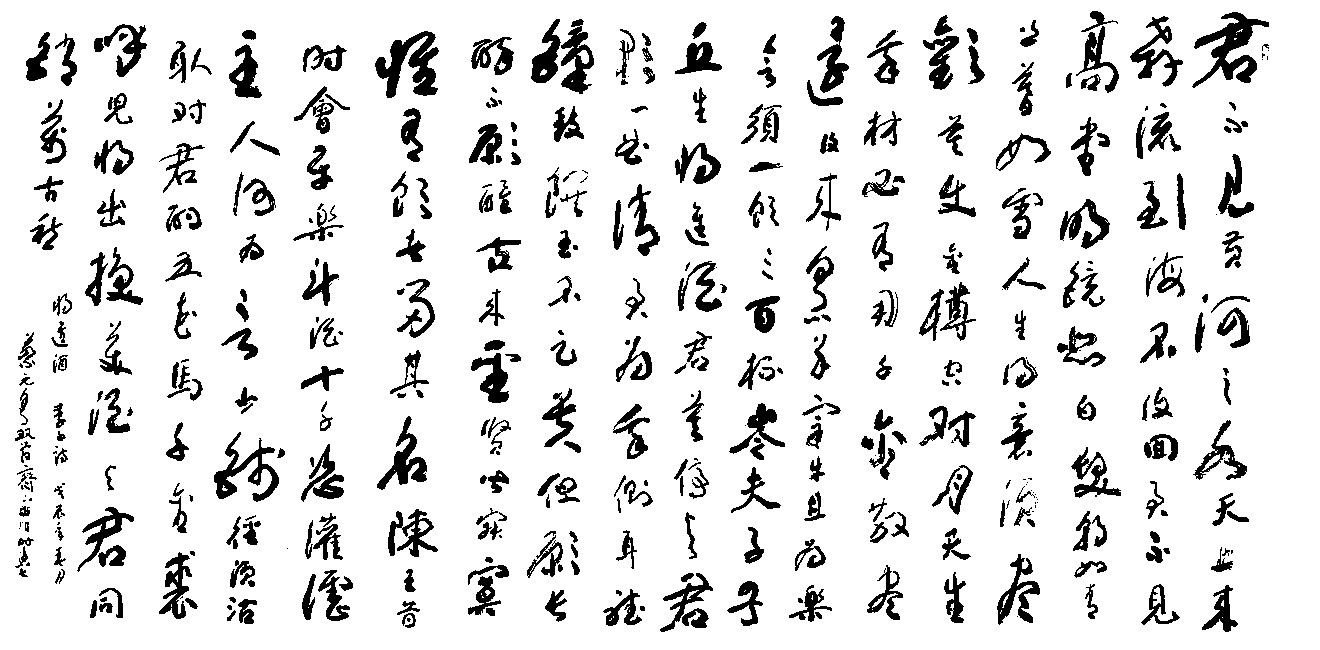 君不見黄河之水天上来
奔流到海不復回君不見
高堂明鏡悲白髮朝如青
丝暮如雪人生得意須尽
歡莫使金樽空对月天生
我材必有用千金散尽
還復来烹羊宰牛且为樂
会須一飲三百杯岑夫子
丘生将進酒君莫停与君
歌一曲請君为我側耳聴
鐘鼓饌玉不足贵但願长
醉不願醒古来聖贤皆寂寞
惟有飲者留其名陳王昔
时會平樂斗酒十千恣讙謔
主人何为言少錢徑須沽
取对君酌五花馬千金裘
呼児将出換美酒与君同
銷萬古愁
将進酒 李白詩 戊辰年春月